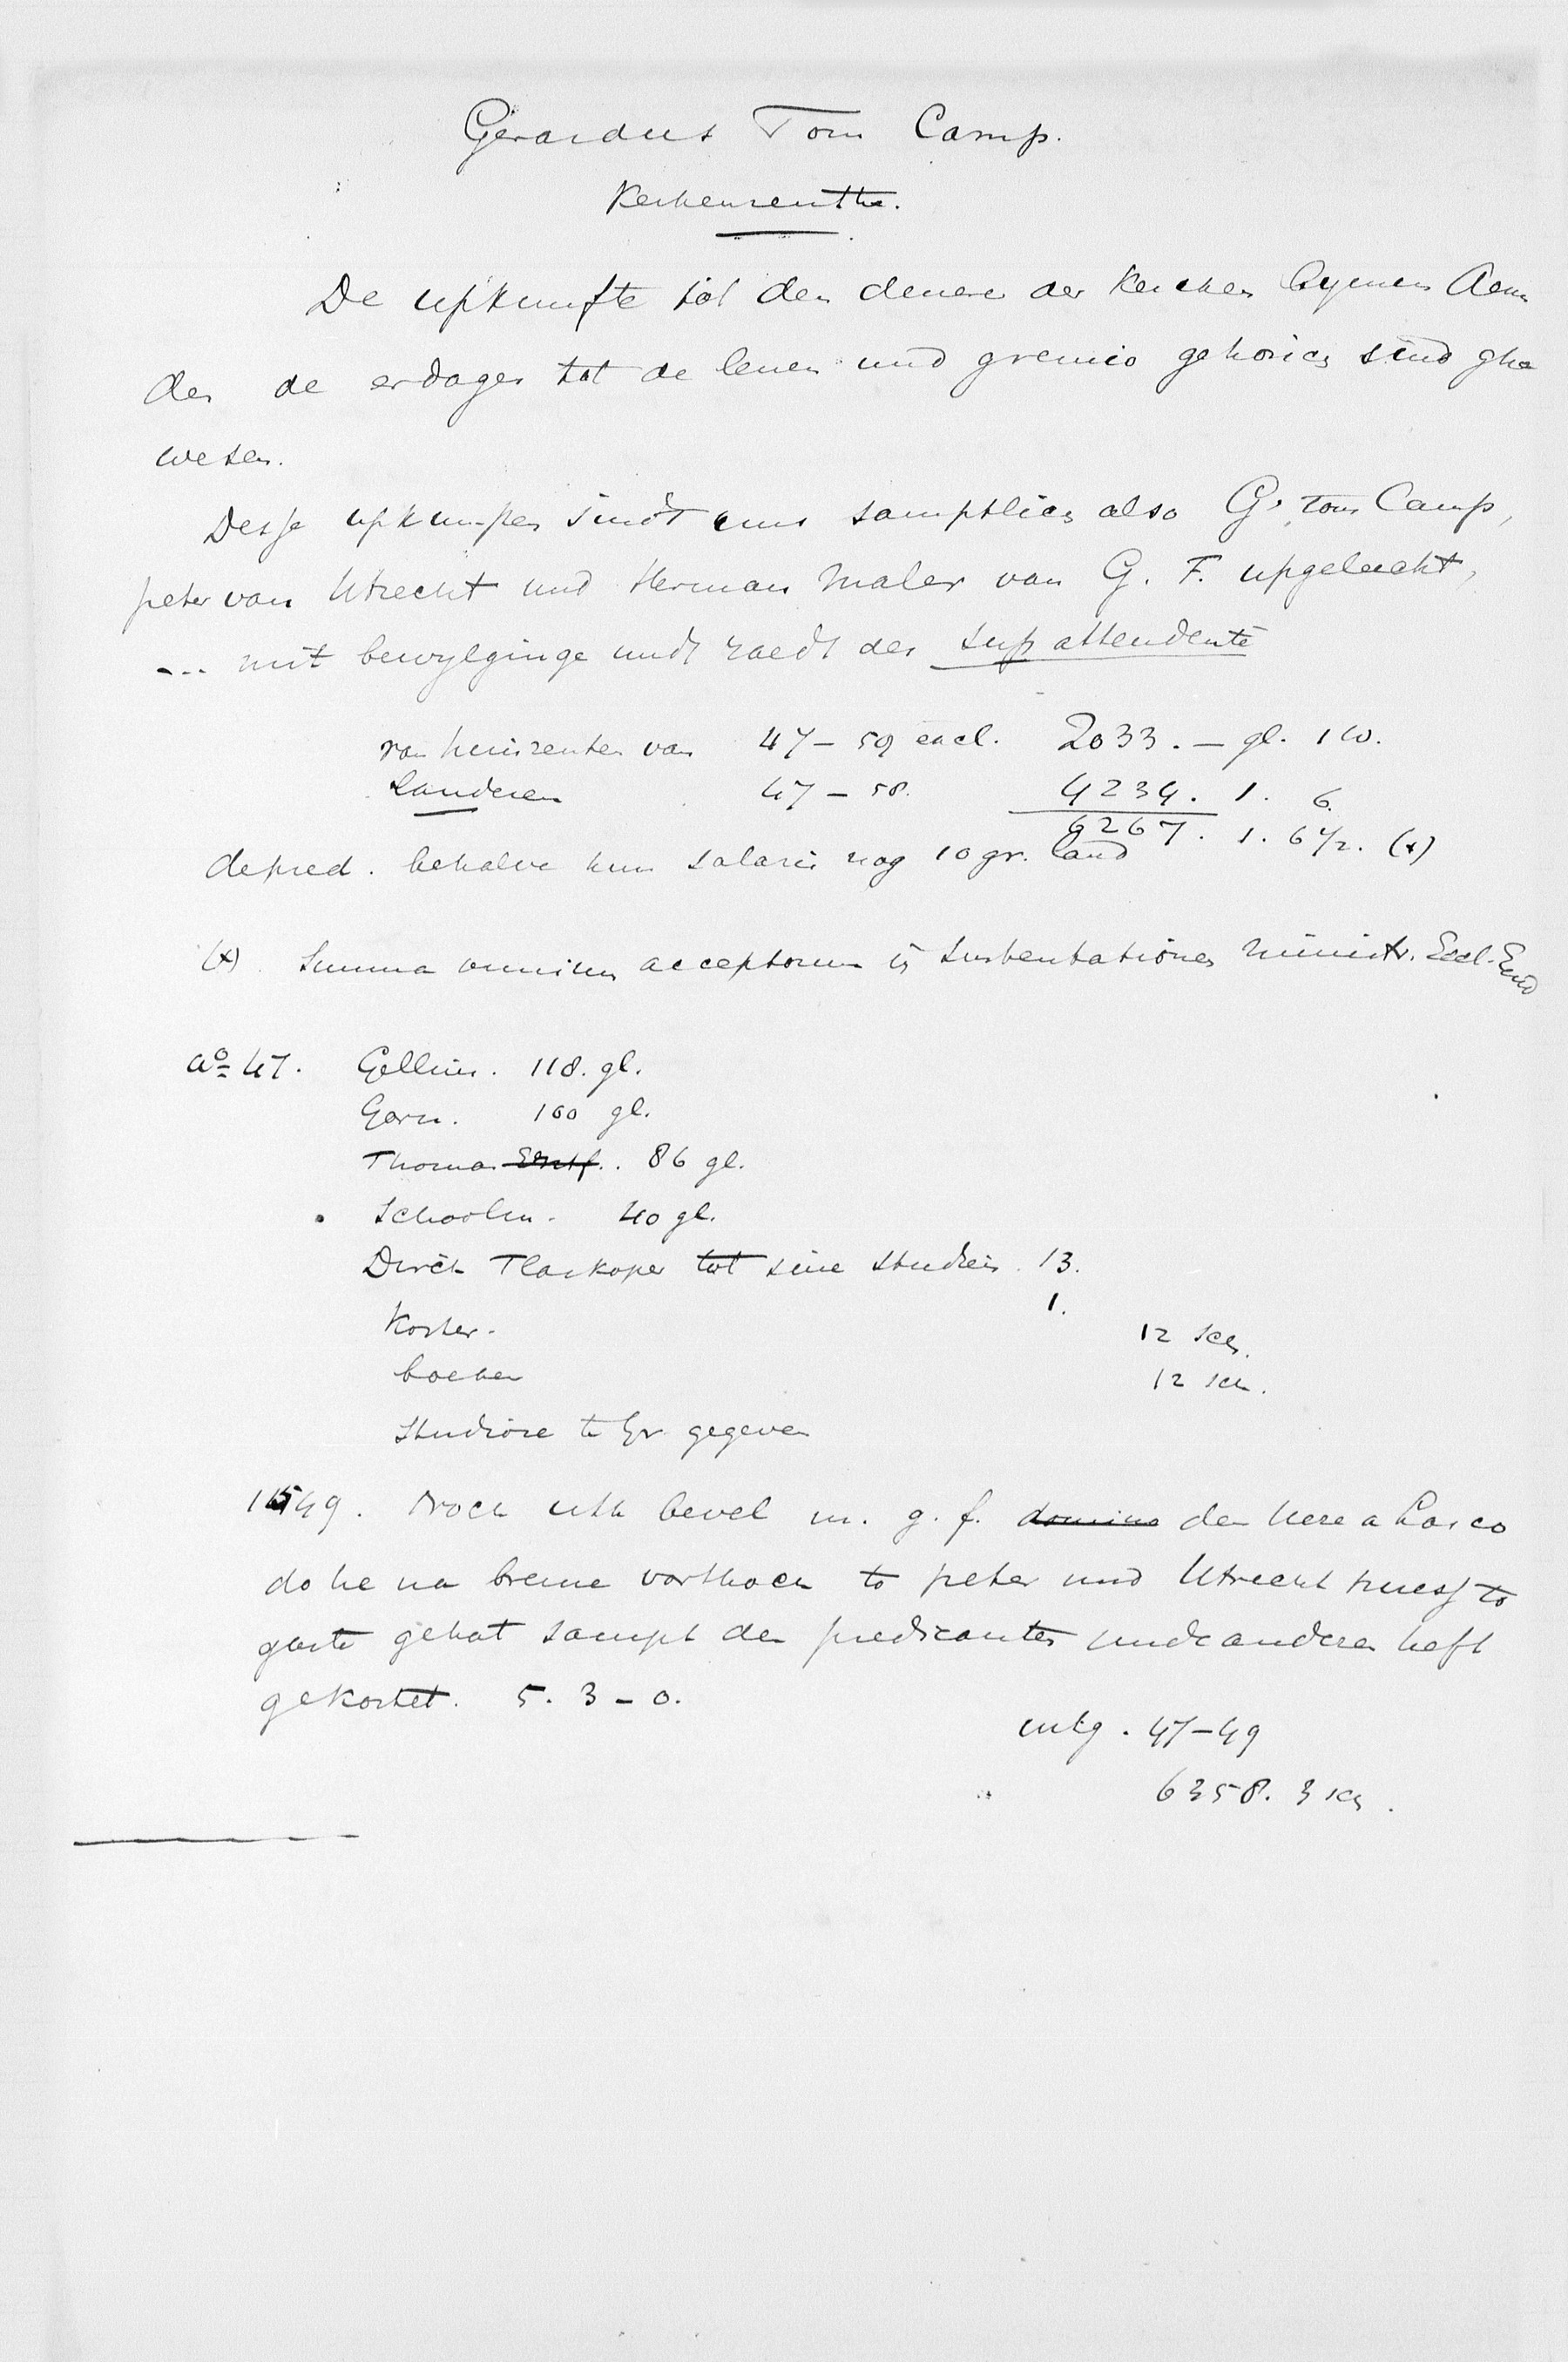 Gerardus Tom Camp.
Kerkenrenthe.
De upkumfte tot den denere der Kercken bynnen Aem
den de erdages tot de lenen und gremio gehorich sind ghe
wesen.
Desse upkumpsten sindt uns samptlich also G. tom Camp,
peter van Utrecht und Herman Maler van G. F. upgelecht,
... mit bewylginge undt raedt des supattendente
van huisrenten van 47 - 59 excl. 2033. — gl. 1 W.
Landeren 47 - 58. 4234. 1. 6.
6267. 1. 6 1/2. (x)
de pred. behalve hun salaris nog 10 gr. land
(x). Summa omnium acceptorum is sustentationes ministr. Eccl. Emd
ao 47. Gellius. 118. gl.
Gern. 100 gl.
Thomas 86 gl.
Schoolm. 40 gl.
Dirck Tlaskoper tot sine studien. 13.
1.
Koster. 12 sch.
boeken 12 sch.
Studiose te Gr. gegeven
1549. Noch uth bevel m. g. f. domino den here a Lasco
do he na breme vorthoch to peter und Utrecht huess to
gaste gehat sampt den predicanten unde anderen heft
gekostet. 5. 3 - 0.
uitg. 47-49
6358. 3 sch.